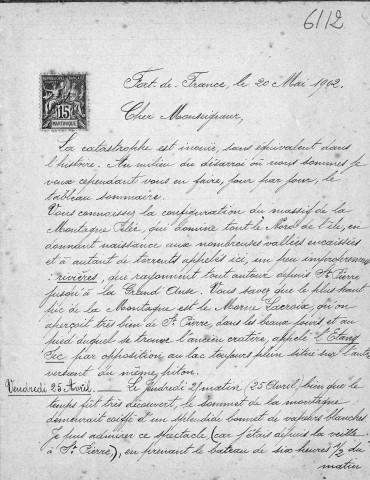 6112
15c
MARTINIQUE
Fort-de-France, le 20 Mai 1902.
Cher Monseigneur,
La catastrophe est inouïe, sans équivalent dans
l'histoire. Au milieu du désarroi où nous sommes je
veux cependant vous en faire, jour par jour, le
tableau sommaire.
Vous connaissez la configuration du massif de la
Montagne Pelée, qui domine tout le Nord de l'île, en
donnant naissance aux nombreuses vallées encaissées
et à autant de torrents appelés ici, un peu improprement
: rivières, qui rayonnent tout autour depuis St Pierre
jusqu'à la Grand Anse. Vous savez que le plus haut
pic de la Montagne est le Morne Lacroix, qu'on
aperçoit très bien de St Pierre, dans les beaux jours et au
pied duquel se trouve l'ancien cratère, appelé l'Etang
Sec par opposition au lac toujours plein situé sur l'autre
versant du même piton.
Vendredi 25 Avril. — Le Vendredi matin (25 Avril) bien que le
temps fût très découvert, le sommet de la montagne
demeurait coiffé et un splendide bonnet de vapeurs blanches.
Je pus admirer ce spectacle (car j'étais depuis la veille
à St Pierre), en prenant le bateau de six heures 1/2 du
matin